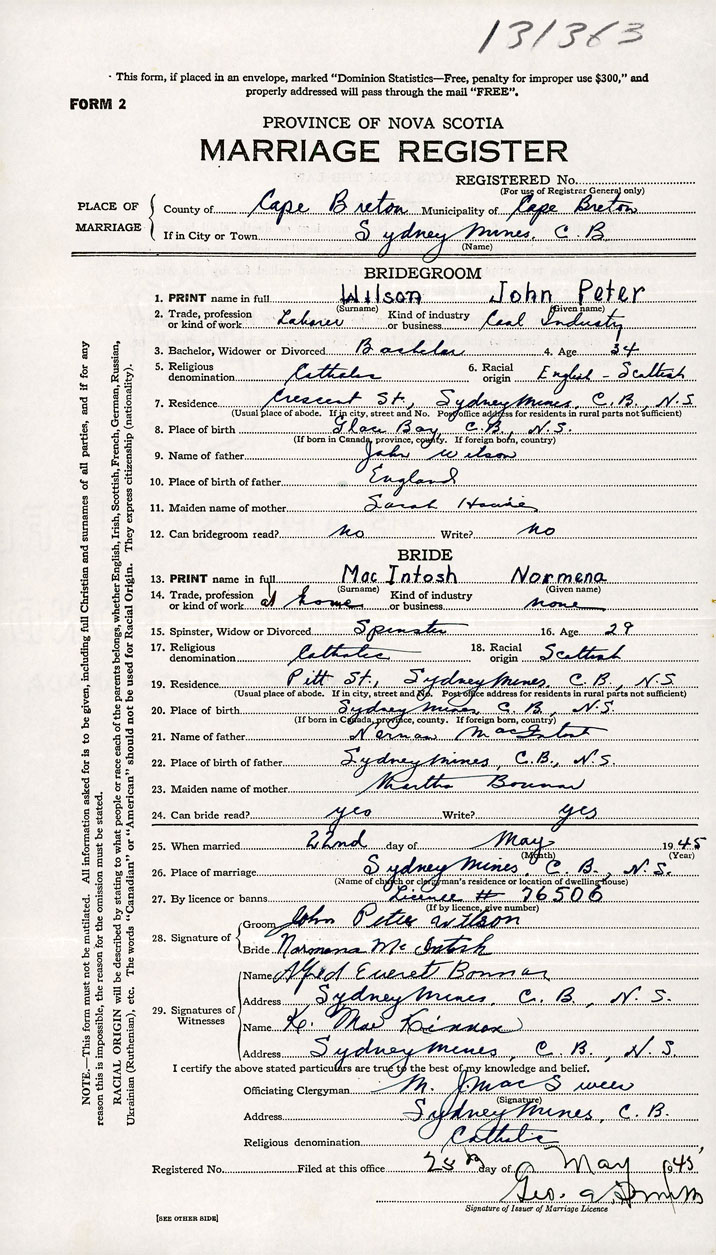 131363
· This form, if placed in an envelope, marked “Dominion Statistics—Free, penalty for improper use $300,” and
properly addressed will pass through the mail “FREE”.
FORM 2
PROVINCE OF NOVA SCOTIA
MARRIAGE REGISTER
REGISTERED No.
(For use of Registrar General only)
PLACE OF MARRIAGE
County of Cape Breton Municipality of Cape Breton
If in City or Town Sydney Mines, C. B
(Name)
BRIDEGROOM
1. PRINT name in full Wilson John Peter
(Surname) (Given name)
2. Trade, profession or kind of work Laborer Kind of industry or business Coal Industry
3. Bachelor, Widower or Divorced Bachelor 4. Age 34
5. Religious denomination Catholic 6. Racial origin English - Scottish
7. Residence Crescent St., Sydney Mines, C.B., N.S
(Usual place of abode. If in city, street and No. Post office address for residents in rural parts not sufficient)
8. Place of birth Glace Bay, C.B., N.S.
(If born in Canada, province, county. If foreign born, country)
9. Name of father John Wilson
10. Place of birth of father England
11. Maiden name of mother Sarah
12. Can bridegroom read? no Write? no
BRIDE
13. PRINT name in full Mac Intosh Normena
(Surname) (Given name)
14. Trade, profession or kind of work at home Kind of industry or business none
15. Spinster, Widow or Divorced Spinster 16. Age 29
17. Religious denomination Catholic 18. Racial origin Scottish
19. Residence Pitt St., Sydney Mines, C.B., N.S
(Usual place of abode. If in city, street and No. Post office address for residents in rural parts not sufficient)
20. Place of birth Sydney Mines, C. B., N.S.
(If born in Canada, province, county. If foreign born, country)
21. Name of father Norman MacIntosh
22. Place of birth of father Sydney Mines, C.B., N.S.
23. Maiden name of mother Martha Bonnar
24. Can bride read? yes Write? yes
25. When married 22nd day of May 1945
(Month) (Year)
26. Place of marriage Sydney Mines, C. B., N.S.
(Name of church or clergyman’s residence or location of dwelling house)
27. By licence or banns Licence # 76506
(If by licence, give number)
28. Signature of
Groom John Peter Wilson
Bride Normena Mc Intosh
29. Signatures of Witnesses
Name Alfred Everet Bonnar
Address Sydney Mines, C. B., N. S.
Name K. Mac Kinnon
Address Sydney Mines, C. B., N. S.
I certify the above stated particulars are true to the best of my knowledge and belief.
Officiating Clergyman M. J. Mac Sween
(Signature)
Address Sydney Mines, C. B.
Religious denomination Catholic
Registered No. Filed at this office day of May 1945
Geo.
Signature of Issuer of Marriage Licence
[SEE OTHER SIDE]
NOTE.—This form must not be mutilated. All information asked for is to be given, including full Christian and surnames of all parties, and if for any
reason this is impossible, the reason for the omission must be stated.
RACIAL ORIGIN will be described by stating to what people or race each of the parents belongs, whether English, Irish, Scottish, French, German, Russian,
Ukrainian (Ruthenian), etc. The words “Canadian” or “American” should not be used for Racial Origin. They express citizenship (nationality).